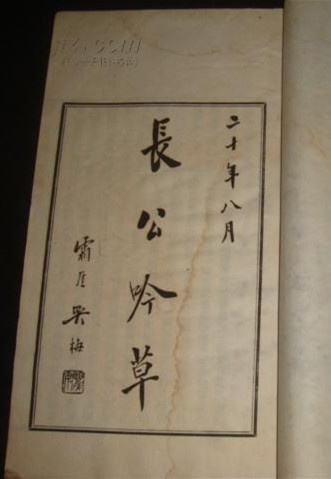 二十年八月
長公吟草
霜厓吳梅